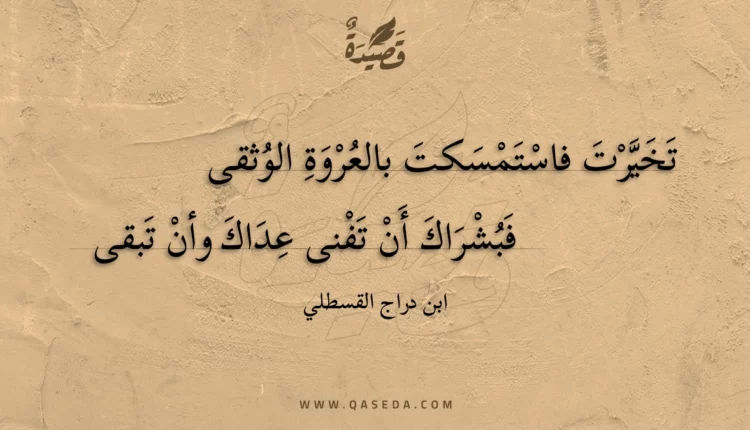 قَصِيدَةٌ
تَخَيَّرْتَ فاسْتَمْسَكتَ بالعُرْوَةِ الوُثقى
فَبُشْرَاكَ أَنْ تَفْنى عِدَاكَ وأنْ تَبقى
ابن دراج القسطلي
WWW.QASEDA.COM